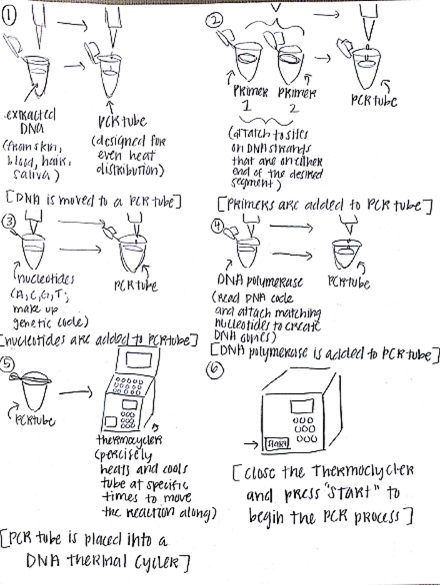 1
extracted
DNA
(from skin,
blood, hair,
saliva)
PCR tube
(designed for
even heat
distribution)
[DNA is moved to a PCR tube]
2
Primer
1
Primer
2
PCR tube
(attatch to sites
on DNA strands
that are on either
end of the desired
segment)
[Primers are added to PCR tube]
3
nucleotides
(A, C, G, T;
make up
genetic code)
PCR tube
[nucleotides are added to PCR tube]
4
DNA polymerase
(Read DNA code
and attach matching
nucleotides to create
DNA copies)
PCR tube
[DNA polymerase is added to PCR tube]
5
PCR tube
thermocycler
(percisely
heats and cools
tube at specific
times to move
the reaction along)
[PCR tube is placed into a
DNA thermal cycler]
6
START
[Close the thermoclycler
and press "START" to
begin the PCR process]